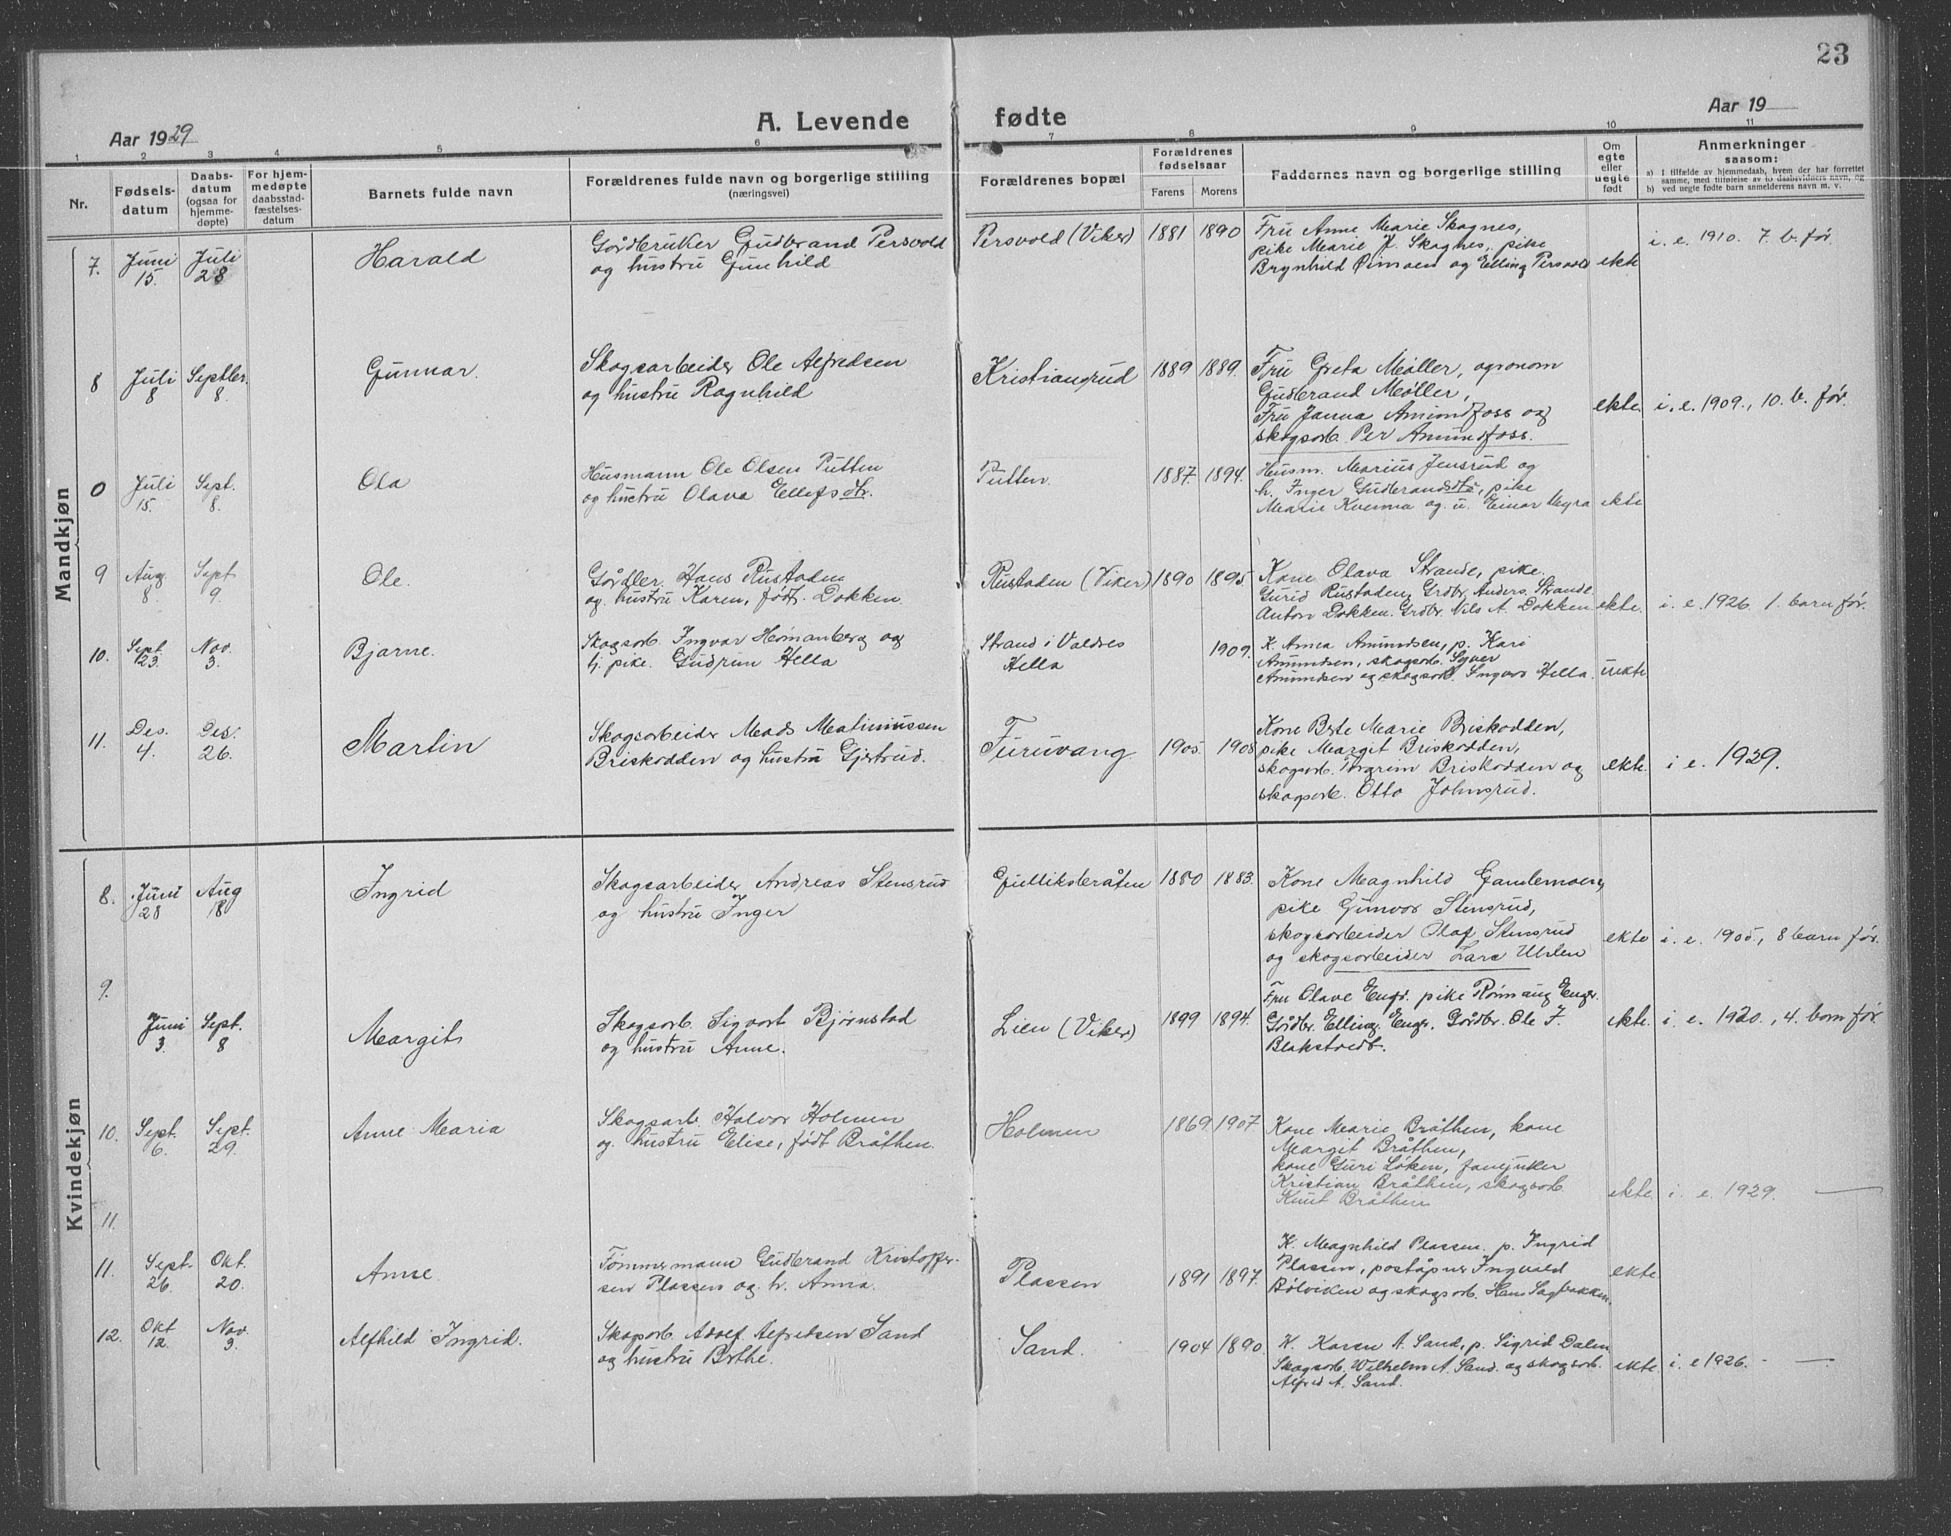 23
Aar 1929
A. Levende fødte
Aar 19
1 2 3 4 5 6 7 8 9 10 11
Nr.
Fødsels-
datum
Daabs-
datum
(ogsaa for
hjemme-
døpte)
For hjem-
medøpte
daabsstad-
fæstelses-
datum
Barnets fulde navn
Forældrenes fulde navn og borgerlige stilling
(næringsvei)
Forældrenes bopæl
Forældrenes
fødselsaar
Farens Morens
Faddernes navn og borgerlige stilling
Om
egte
eller
uegte
født
Anmerkninger
saasom:
a) I tilfælde av hjemmedaab, hvem der har forrettet
samme, med tilføielse av to daabsvidners navn, og
b) ved uegte fødte barn anmelderens navn m. v.
Mandkjøn
7. Juni 15. Juli 28
Harald
Gårdbruker Gudbrand Persvold
og hustru Gunhild
Persvold (Viker) 1881 1890
Fru Anne Marie Skagnes,
pike Marie J. Skagnes, pike
Brynhild Øimoen og Elling Persvold
ekte
i. e. 1910. 7. b. før.
8 Juli 8 Septbr. 8.
Gunnar.
Skogsarbeider Ole Alfredsen
og hustru Ragnhild
Kristiansrud 1889 1889.
Fru Greta Møller, agronom
Gudbrand Møller,
Fru Janna Amundfoss og
skogsarb. Per Amundfoss.
ekte.
i. e. 1909., 10. b. før.
0 Juli 15. Sept. 8.
Ola
Husmann Ole Olsen Putten
og hustru Olava Ellefsdtr.
Putten. 1887. 1894.
Husm. Marius Jensrud og
h. Inger Gudbrandsdtr, pike
Marie Kvenna og u. Einar Myra
ekte
9 Aug. 8. Sept 9.
Ole.
Gårdbr. Hans Rustaden
og hustru Karen, født Dokken.
Rustaden (Viker) 1890 1895.
Kone Olava Strande, pike.
Gurid Rustaden, Grdbr. Anders Strande
Anton Dokken. Grdbr. Nils A. Dokken
ekte.
i. e. 1926. 1. barn før.
10. Sept. 23. Nov. 3.
Bjarne.
Skogsarb. Ingvar Heimanberg og
pike. Gudrun Hella
Strand i Valdres
Hella
1909.
K. Anna Amundsen, p. Kari
Amundsen, skogsarb. Syver
Amundsen og skogsarb. Ingvar Hella.
uekte
11. Des. 4. Des. 26.
Martin
Skogsarbeider Mads Matiniussen
Briskodden og hustru Gjertrud.
Furuvang 1905. 1908
Kone Berte Marie Briskodden,
pike Margit Briskodden,
skogsarb. Torgrim Briskodden og
skogsarb. Otto Johnsrud.
ekte.
i e. 1929.
Kvindekjøn
8. Juni 28 Aug 18
Ingrid
Skogsarbeider Andreas Stensrud
og hustru Inger
Gulliksbråten 1880 1883.
Kone Magnhild Gamlemoen,
pike Gunvor Stensrud,
skogsarbeider Olaf Stensrud
og skogsarbeider Lars Uhlen
ekte
i. e. 1905, 8 barn før.
9. Juni 3. Sept. 8
Margit
Skogsarb. Sigvart Bjørnstad
og hustru Anne.
Lien (Viker) 1899 1894.
Fru Olave Enger. pike Rømaug Enger.
Gårdbr. Elling Enger. Gårdbr. Ole J.
Blakstvedt.
ekte.
i. e. 1920., 4. barn før
10. Sept. 6. Sept. 29.
Anne Maria
Skogsarb. Halvor Holmen
og. hustru Elise, født Bråthen.
Holmen 1869. 1907
Kone Marie Bråthen, kone
Margit Bråthen,
kone Guri Løken, fanejunker
Kristian Bråthen, skogsarb.
Knut Bråthen
ekte
i. e. 1929.
11.
11. Sept. 26. Okt. 20.
Anne.
Tømmermann Gudbrand Kristoffer-
sen Plassen og. h. Anna.
Plassen 1891 1897.
K. Magnhild Plassen, p. Ingrid
Plassen, poståpner Ingvald
Bølviken og skogsarb. Hans Sagbakken.
ekte.
12. Okt 12. Nov. 3.
Alfhild Ingrid.
Skogsarb. Adolf Alfredsen Sand
og hustru Berthe.
Sand. 1904 1890.
K. Karen A. Sand, p. Sigrid Dalen
Skogsarb. Wilhelm A. Sand. og skogsarb.
Alfred A. Sand.
ekte.
i. e 1926.